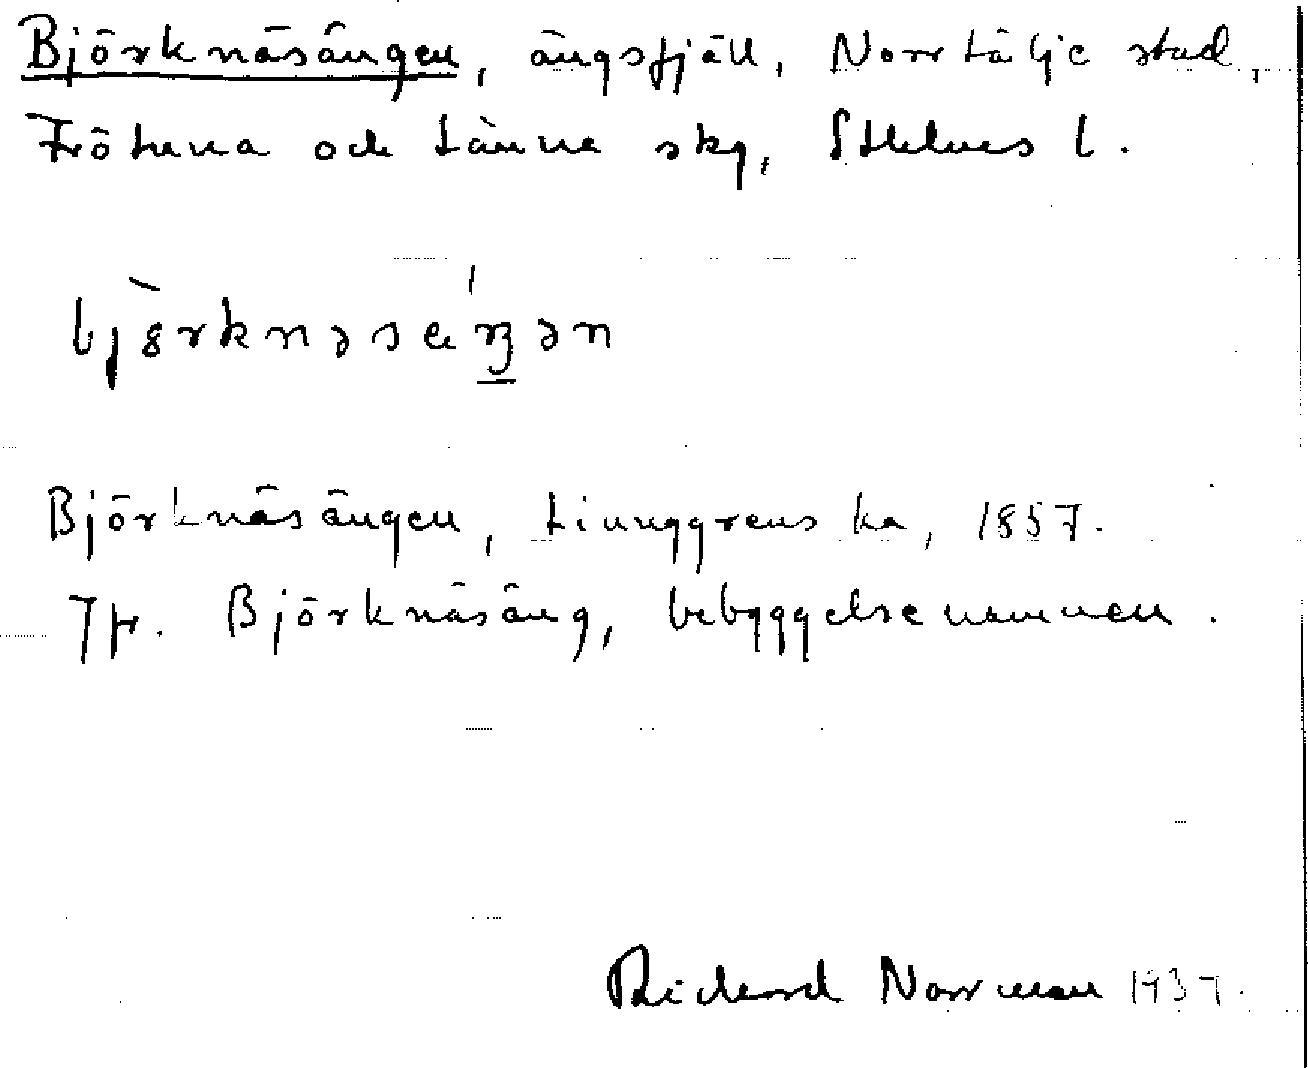 Björknäsängen, ängsfjäll, Norrtälje stad,
Frötuna och Länna skg, Sthlms l.
björknəsɶŋən
Björknäsängen, Liunggrens ka, 1857.
Jfr. Björknäsäng, bebyggelsenamnen.
Richard Norrman 1937.